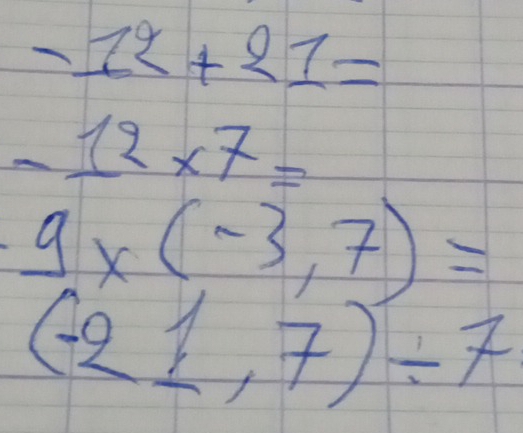 -12+21=
-12×7=
-9×(-3,7)=
(-21,7)÷7